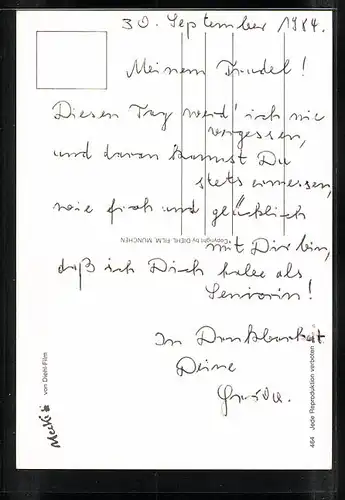 30. September 1984.
Meinem Trudel!
Diesen Tag werd' ich nie
vergessen,
und daran kannst Du
stets ermessen,
wie froh und glücklich
mit Dir bin,
daß ich Dich habe als
Seniorin!
In Dankbarkeit
Deine
Copyright by DIEHL-FILM, MÜNCHEN
Mecki
von Diehl-Film
464 Jede Reproduktion verboten